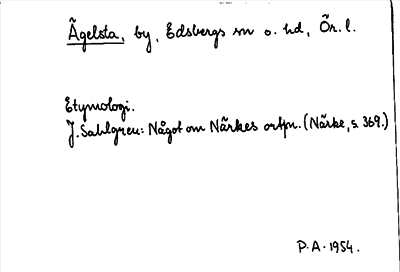 Ägelsta, by, Edsbergs sn o. hd, Ör. l.
Etymologi.
J. Sahlgren: Något om Närkes ortpn. (Närke, s. 369.)
P.A. 1954.